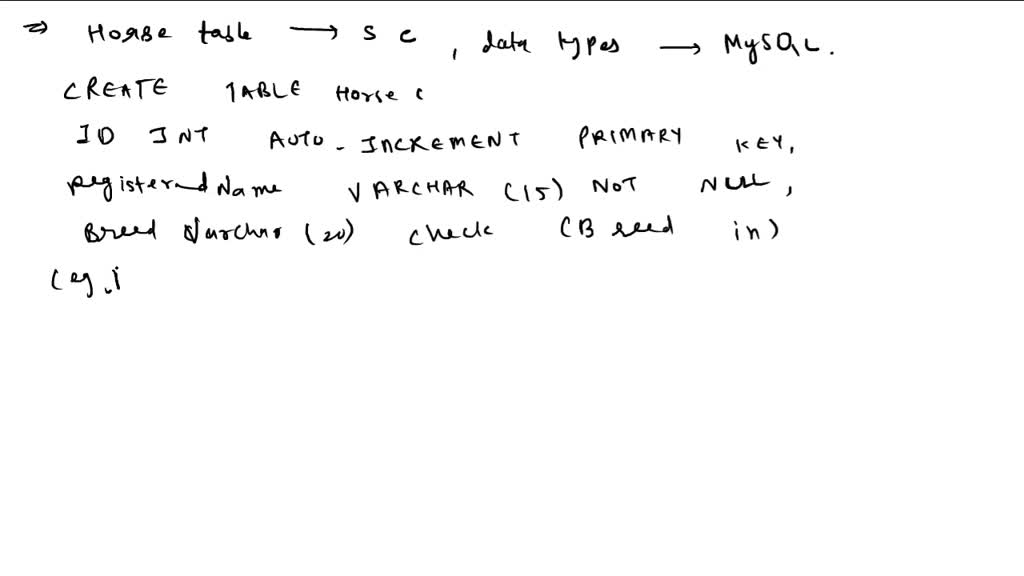 ⇒ Horse table → s c , data types → MySQL.
CREATE TABLE Horse (
ID INT AUTO_INCREMENT PRIMARY KEY,
registered Name VARCHAR (15) NOT NULL,
Breed Varchar (20) check (Breed in)
(eg,i